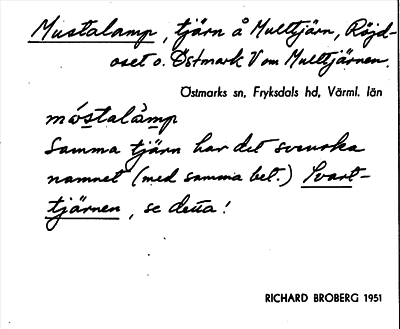 Mustalamp, tjärn å Multjärn, Röjd-
oset o. Östmark V om Multjärnen.
Östmarks sn, Fryksdals hd, Värml. län
móstalàmp
Samma tjärn har det svenska
namnet (med samma bet.) Svart-
tjärnen, se detta!
RICHARD BROBERG 1951